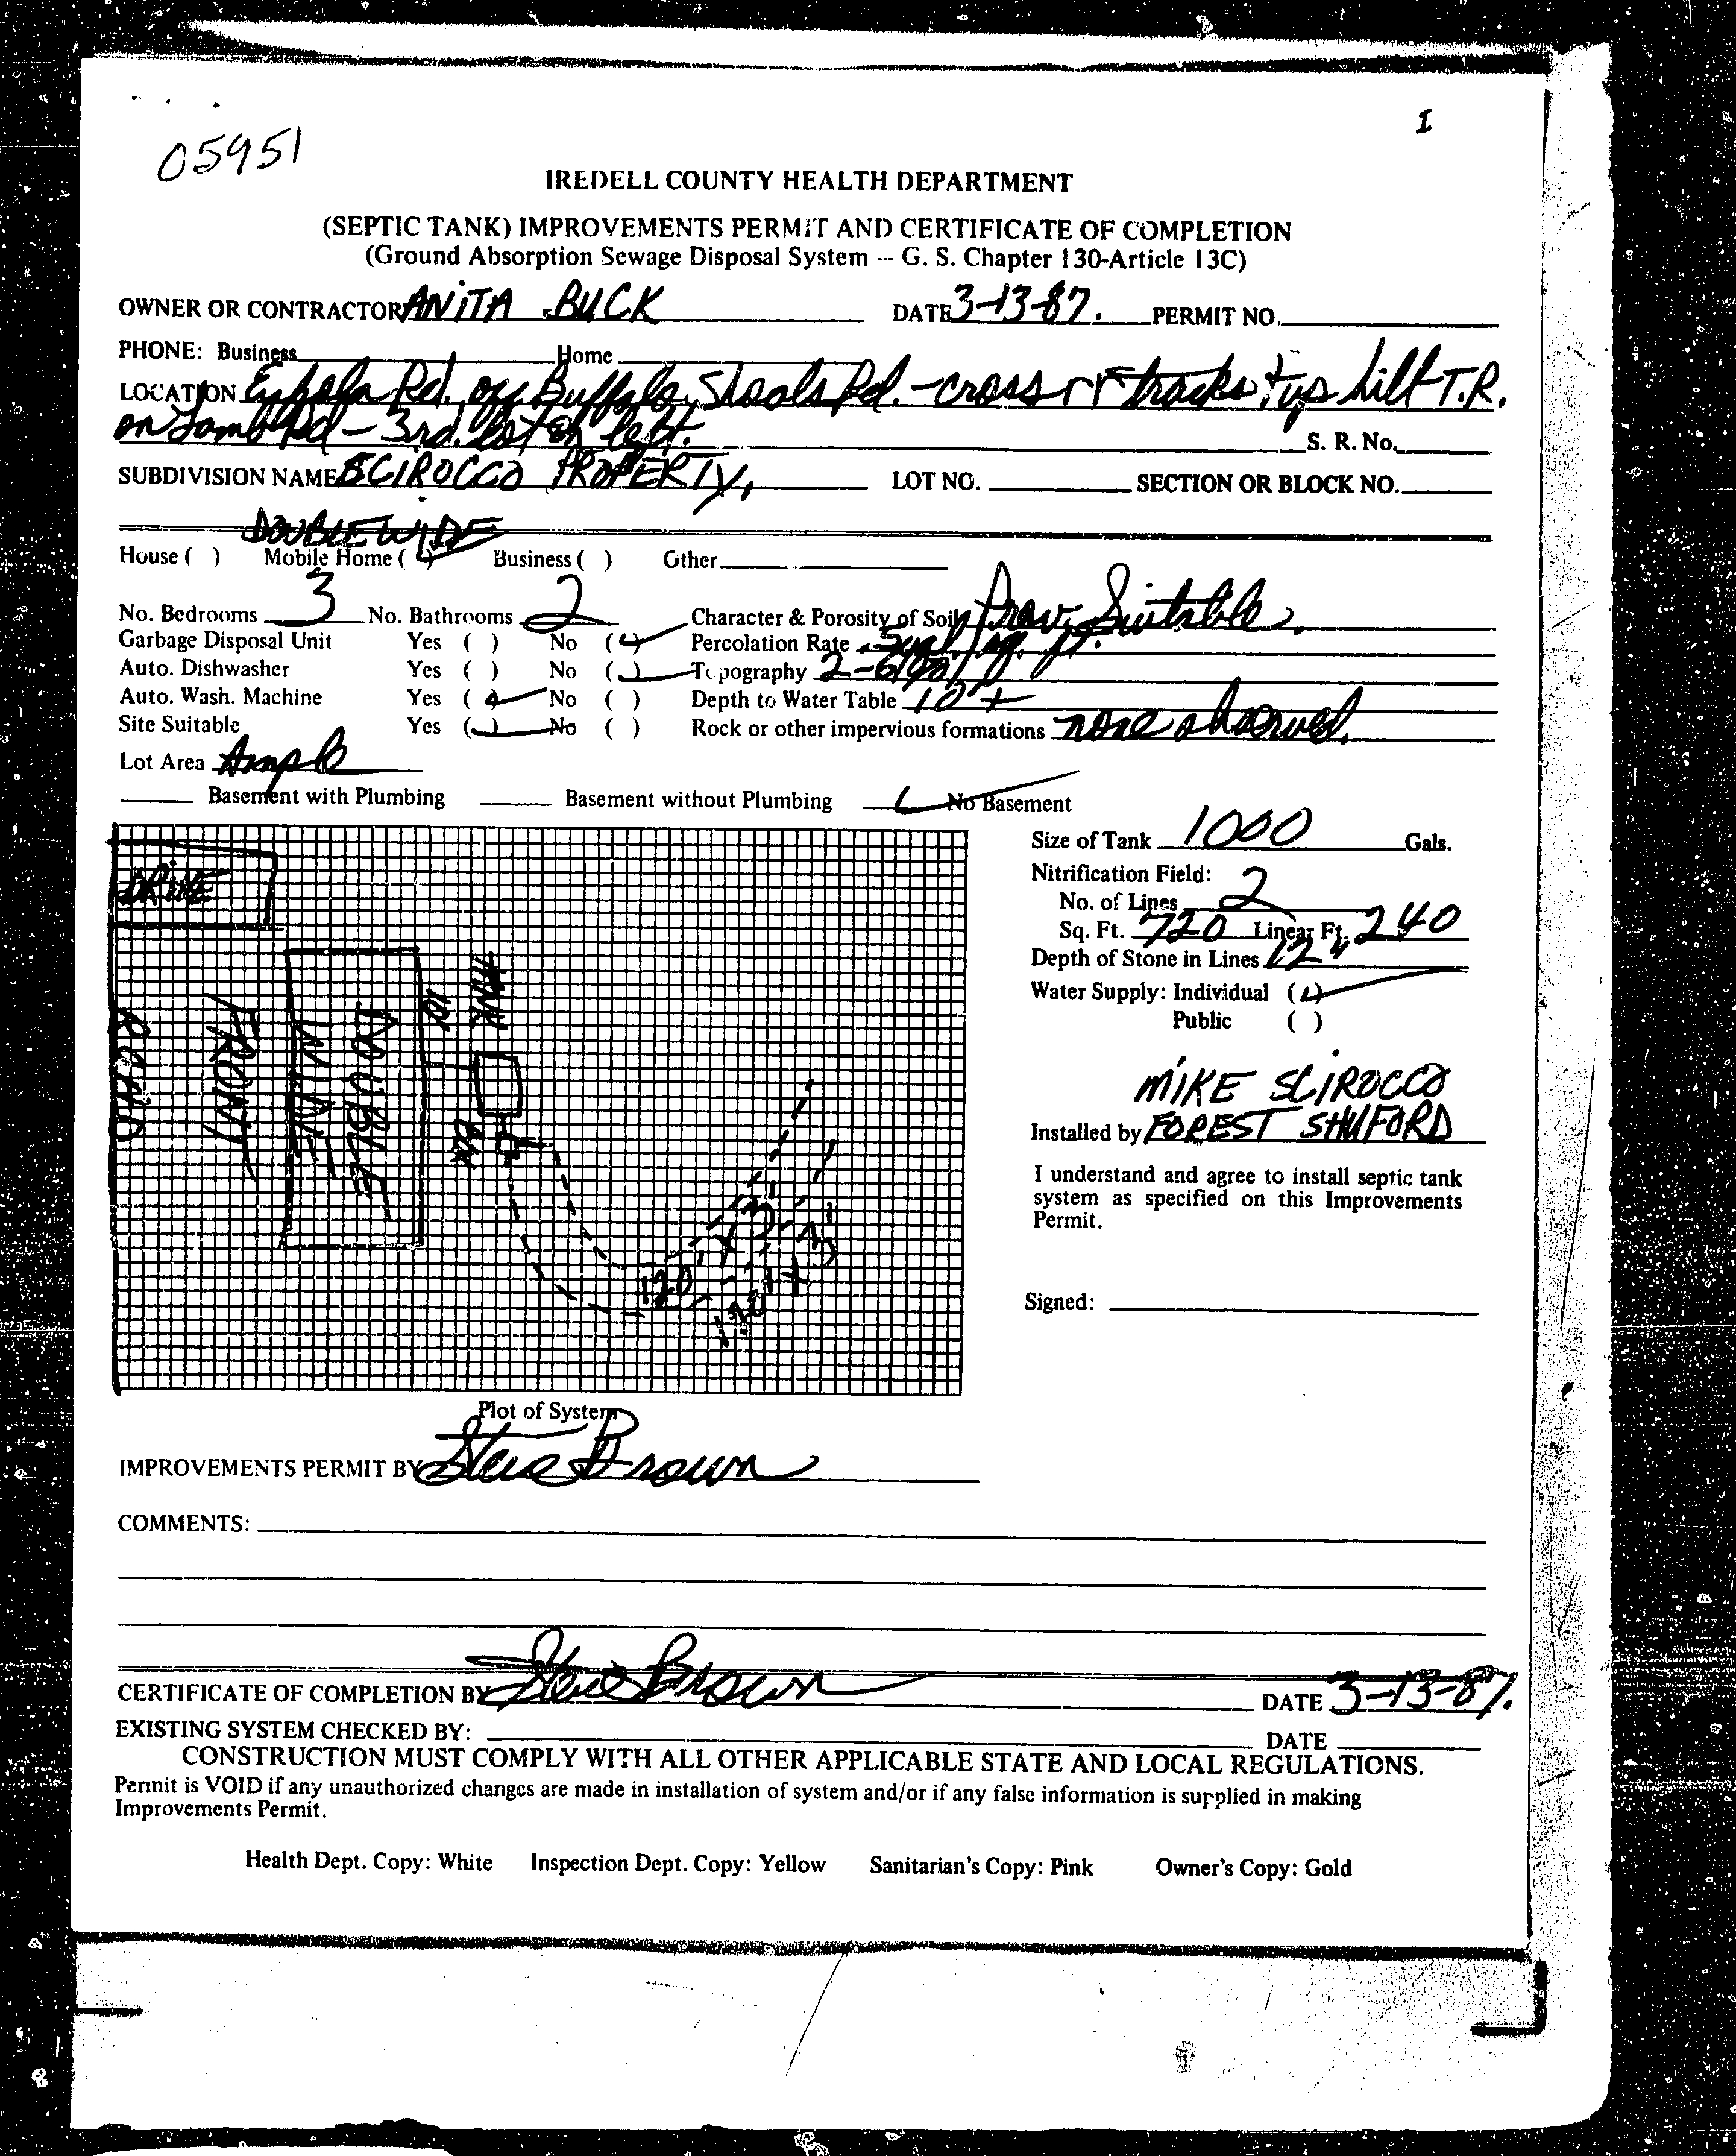 I
05951
IREDELL COUNTY HEALTH DEPARTMENT
(SEPTIC TANK) IMPROVEMENTS PERMIT AND CERTIFICATE OF COMPLETION
(Ground Absorption Sewage Disposal System -- G. S. Chapter 130-Article 13C)
OWNER OR CONTRACTOR ANITA BUCK DATE 3-13-87. PERMIT NO.
PHONE: Business Home
LOCATION Eufola Rd. off Buffalo Shoals Rd. - cross rr tracks & up hill T.R.
on Lamb Rd - 3rd. lot on left. S. R. No.
SUBDIVISION NAME SCIROCCO PROPERTY, LOT NO. SECTION OR BLOCK NO.
DOUBLEWIDE
House ( ) Mobile Home (✓) Business ( ) Other
No. Bedrooms 3 No. Bathrooms 2 Character & Porosity of Soil Prov. Suitable.
Garbage Disposal Unit Yes ( ) No (✓) Percolation Rate sq. ft.
Auto. Dishwasher Yes ( ) No (✓) Topography 2-6%
Auto. Wash. Machine Yes (✓) No ( ) Depth to Water Table 10'+
Site Suitable Yes (✓) No ( ) Rock or other impervious formations none observed.
Lot Area Ample
Basement with Plumbing Basement without Plumbing ✓ No Basement
Size of Tank 1000 Gals.
Nitrification Field:
No. of Lines 2
Sq. Ft. 720 Linear Ft. 240
Depth of Stone in Lines 12"
Water Supply: Individual (✓)
Public ( )
MIKE SCIROCCO
Installed by FOREST SHUFORD
I understand and agree to install septic tank
system as specified on this Improvements
Permit.
Signed:
DRIVE
ROAD
FRONT
DOUBLE
WIDE
10'
TANK
BOX
120' X 3'
120' X 3'
Plot of System
IMPROVEMENTS PERMIT BY Steve Brown
COMMENTS:
CERTIFICATE OF COMPLETION BY Steve Brown DATE 3-13-87.
EXISTING SYSTEM CHECKED BY: DATE
CONSTRUCTION MUST COMPLY WITH ALL OTHER APPLICABLE STATE AND LOCAL REGULATIONS.
Permit is VOID if any unauthorized changes are made in installation of system and/or if any false information is supplied in making
Improvements Permit.
Health Dept. Copy: White Inspection Dept. Copy: Yellow Sanitarian's Copy: Pink Owner's Copy: Gold